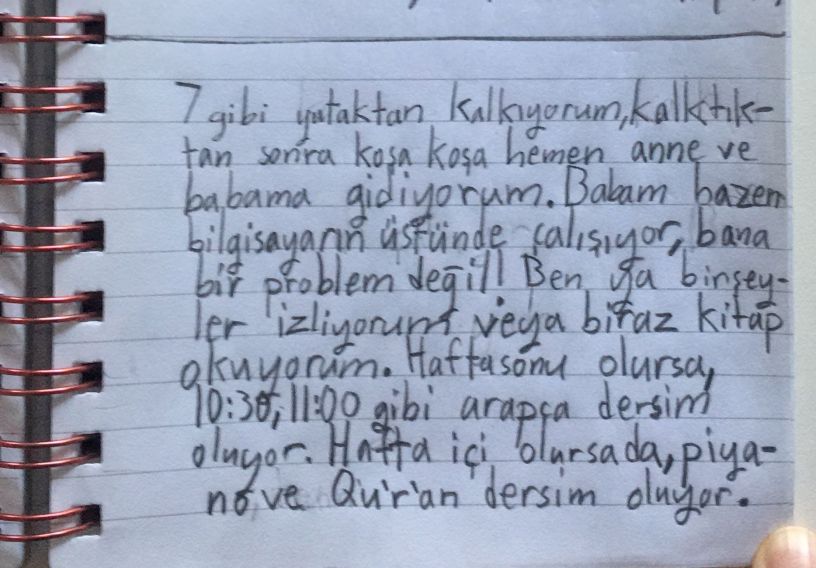 7 gibi yataktan kalkıyorum, kalktık-
tan sonra koşa koşa hemen anne ve
babama gidiyorum. Babam bazen
bilgisayarın üstünde çalışıyor, bana
bir problem değil! Ben ya birşey-
ler izliyorum veya biraz kitap
okuyorum. Haftasonu olursa,
10:30, 11:00 gibi arapça dersim
oluyor. Hafta içi olursada, piya-
no ve Qu'r'an dersim oluyor.